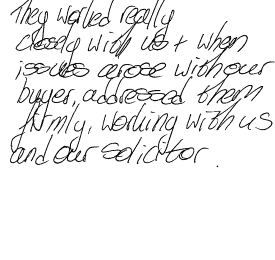 They worked really
closely with us + when
issues arose with our
buyer, addressed them
firmly, working with us
and our solicitor.